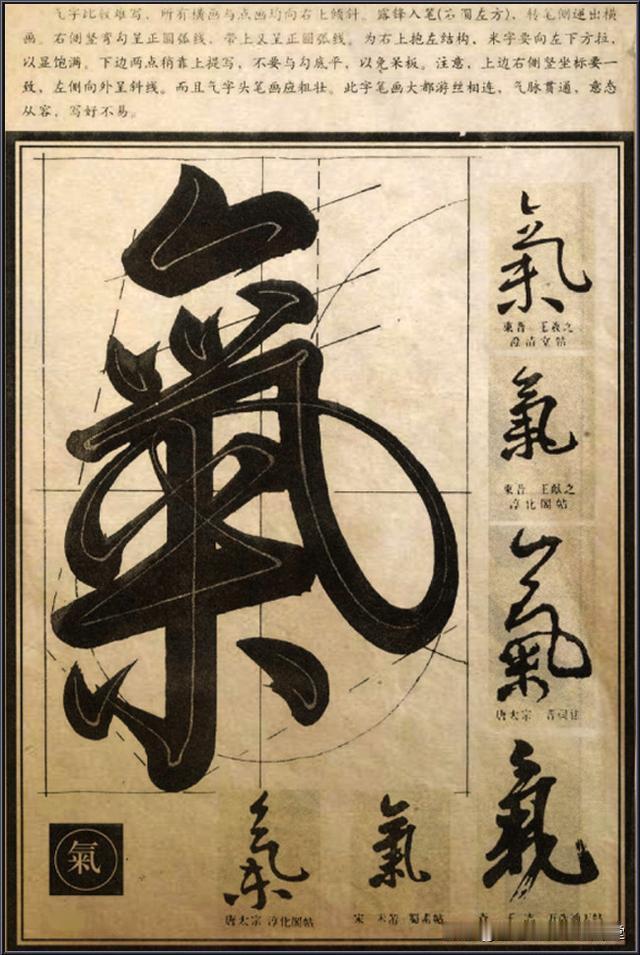 气字比较难写，所有横画与点画均向右上倾斜。露锋入笔(不 左方)，转笔侧 出横
画。右侧竖弯勾呈正圆弧线，带上又呈正圆弧线。为右上抱左结构，米字要向左下方拉，
以显饱满。下边两点稍靠上提写，不要与勾底平，以免呆板。注意，上边右侧竖坐标要一
致，左侧向外呈斜线。而且气字头笔画应粗壮。此字笔画大都游丝相连，气脉贯通，意态
从容，写好不易。
氣
氣
東晋 王羲之
澄清堂帖
氣
東晋 王献之
淳化閣帖
氣
唐太宗
氣
氣
唐太宗 淳化閣帖
氣
宋 米芾 蜀素帖
氣
氣